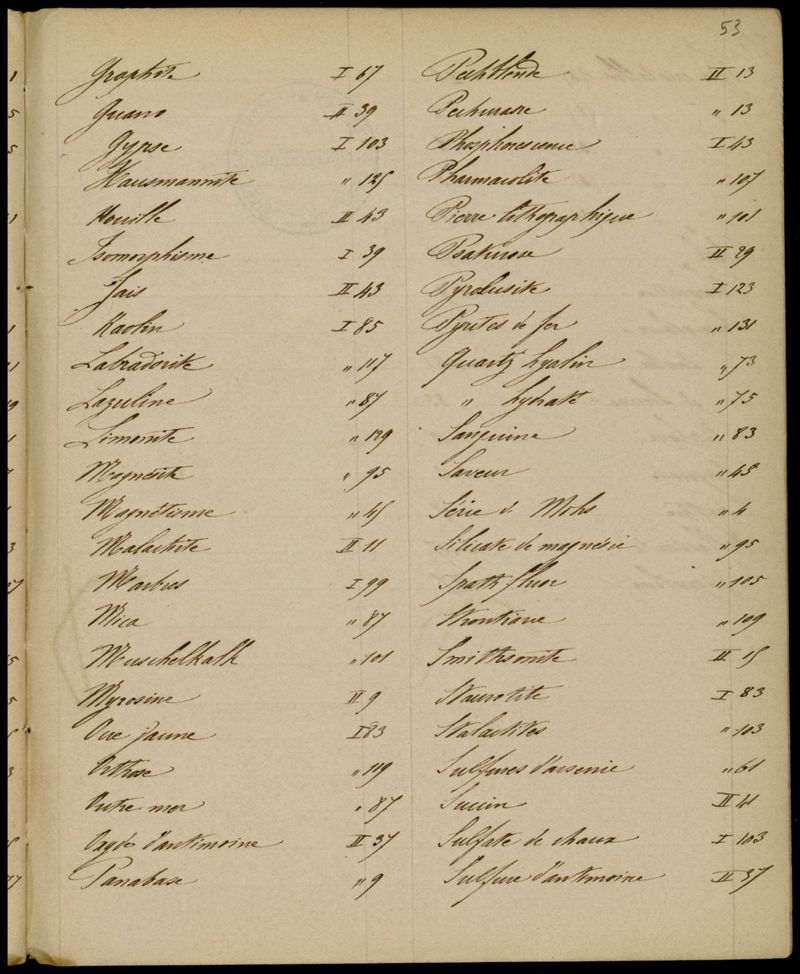 53
Graphite I 67
Guano II 39
Gypse I 103
Hausmannite " 125
Houille II 43
Isomorphisme I 39
Jais II 43
Kaolin I 85
Labradorite " 117
Lazuline " 87
Limonite " 129
Magnésite " 95
Magnétisme " 45
Malachite II 11
Marbres I 99
Mica " 87
Muschelkalk " 101
Myrosine II 9
Ocre jaune I 83
Orthose " 119
Outre mer " 87
Oxyde d'antimoine II 37
Panabase " 9
Pechblende II 13
Pechurane " 13
Phosphorescence I 43
Pharmacolite " 107
Pierre lithographique " 101
Psaturose II 29
Pyrolusite I 123
Pyrites de fer " 131
Quartz hyalin " 73
" hydraté " 75
Sanguine " 83
Saveur " 45
Série de Mohs " 4
Silicate de magnésie " 95
Spath fluor " 105
Strontiane " 109
Smithsonite II 15
Staurotite I 83
Stalactites " 103
Sulfures d'arsenic " 61
Succin II 41
Sulfate de chaux I 103
Sulfure d'antimoine II 37